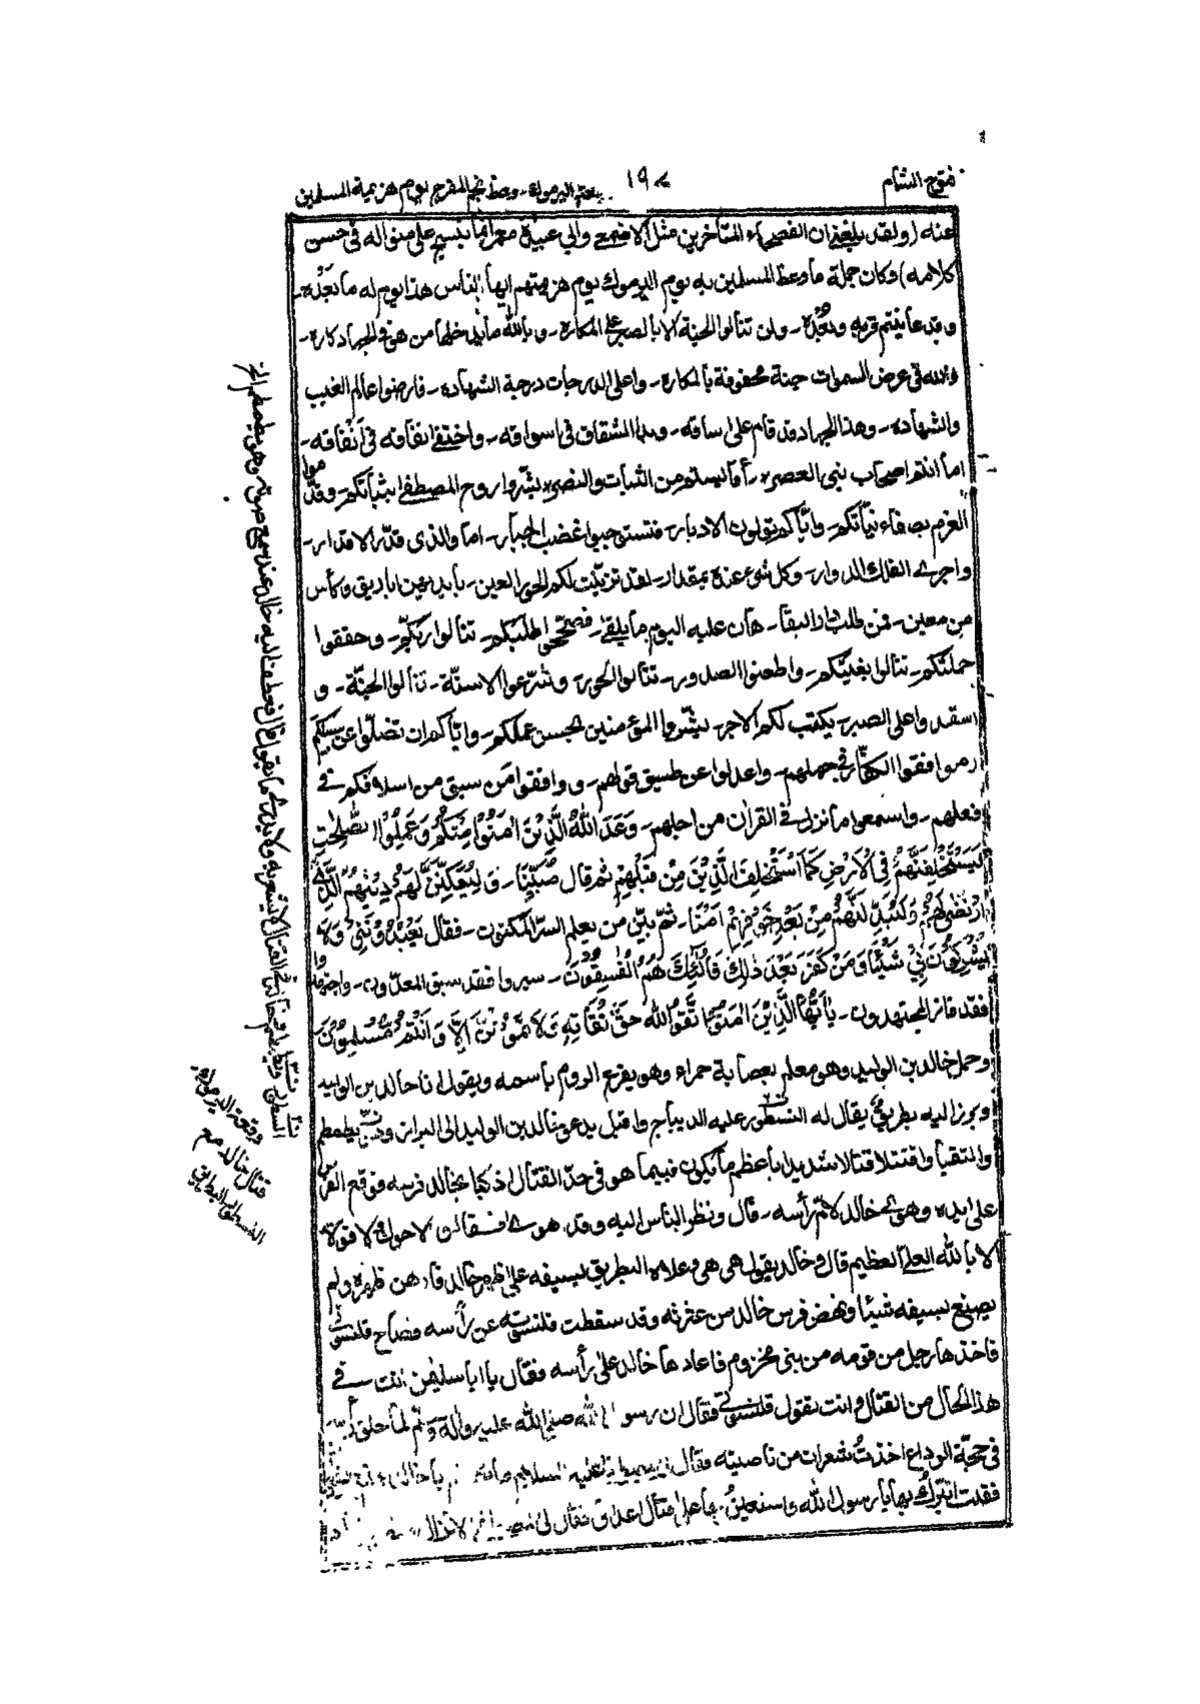 فتوح الشام
١٩٧
وعظ نجم المفرح يوم هزيمة المسلمين
عنه (ولقد بلغني ان الفصحاء المتأخرين مثل الاصمعي وابي عبيدة معمر انما ينسج على منواله في حسن
كلامه) وكان جملة ما وعظ المسلمين به يوم اليرموك يوم هزيمتهم ايها الناس هذا يوم له ما بعده-
وقد عاينتم قربه وبعده- ولن تنالوا الجنة الا بالصبر على المكاره- وبالله ما يدخلها من هو في الجهاد كاره-
ولله في عرض السموات جنة محفوفة بالمكاره- واعلى الدرجات درجة الشهاده- فارضوا عالم الغيب
والشهاده- وهذا الجهاد قد قام على ساقه- وبدا الشقاق في اسواقه- واختفى انفاقه في انفاقه-
اما انتم اصحاب نبي العصر- أما لستم من الثبات والنصر بشروا روح المصطفى بثباتكم- وقدموا
العزم بصفاء نياتكم- واياكم تولون الادبار- فتستوجبوا غضب الجبار- اما والذي قدر الاقدار-
واجرى الفلك الدوار- وكل شيء عنده بمقدار- لقد تزينت لكم الحور العين- بايديهن اباريق وكأس
من معين- فمن طلب دار البقا- هان عليه اليوم ما يلقى- فصححوا طلبكم- تنالوا ربكم- وحققوا
حملتكم- تنالوا بغيتكم- واطعنوا الصدور- تنالوا الحور- وشرعوا الاسنة- تنالوا الجنة- و
على الصبر- يكتب لكم الاجر- بشروا المؤمنين بحسن عملكم- واياكم ان تضلوا عن سبيلكم
وافقوا الكفار في جهلهم- واعدلوا عن طريق قولهم- ووافقوا من سبق من اسلافكم في
فعلهم- واسمعوا ما نزل في القرآن من اجلهم- وَعَدَ اللهُ الَّذِيْنَ اٰمَنُوْا مِنْكُمْ وَعَمِلُوا الصّٰلِحٰتِ
لَيَسْتَخْلِفَنَّهُمْ فِي الْاَرْضِ كَمَا اسْتَخْلَفَ الَّذِيْنَ مِنْ قَبْلِهِمْ ثم قال مبينا- وَلَيُمَكِّنَنَّ لَهُمْ دِيْنَهُمُ الَّذِي
ارْتَضٰى لَهُمْ وَلَيُبَدِّلَنَّهُمْ مِنْ بَعْدِ خَوْفِهِمْ اَمْنًا- ثم بين من يعلم السر المكنون- فقال يَعْبُدُوْنَنِيْ وَلَا
يُشْرِكُوْنَ بِيْ شَيْئًا وَمَنْ كَفَرَ بَعْدَ ذٰلِكَ فَاُولٰئِكَ هُمُ الْفٰسِقُوْنَ- سيروا فقد سبق المعدون- واجتهدوا
فقد فاز المجتهدون- يٰاَيُّهَا الَّذِيْنَ اٰمَنُوا اتَّقُوا الله حَقَّ تُقَاتِهٖ وَلَا تَمُوْتُنَّ اِلَّا وَاَنْتُمْ مُسْلِمُوْنَ
وحمل خالد بن الوليد وهو معلم بعصابة حمراء وهو يفزع الروم باسمه ويقول انا خالد بن الوليد
وبرز اليه بطريق يقال له النسطور عليه الديباج واقبل يدعو خالد بن الوليد الى البراز وهو يطمطم
والتقيا واقتتلا قتالا شديدا باعظم ما يكون فبينما هو في حد القتال اذ كبا بخالد فرسه فوقع الفرس
على ايديه وهوى خالد لام رأسه- قال ونظر الناس اليه وقد هوى فقالوا لا حول ولا قوة
الا بالله العلي العظيم قال وخالد يقول هي هي وعلاه البطريق بسيفه على ظهر خالد فاوهن ظهره ولم
يصنع بسيفه شيئا ونهض فرس خالد من عثرته وقد سقطت قلنسوته عن رأسه فصاح قلنسوتي
فاخذها رجل من قومه من بني مخزوم فاعادها خالد على رأسه فقال يا ابا سليمن انت في
هذا الحال من القتال وانت تقول قلنسوتي فقال ان رسول الله صلى الله عليه واله وسلم لما حلق رأسه
في حجة الوداع اخذت شعرات من ناصيته فقال
فقلت اتبرك بها يا رسول الله واستعين بها على قتال اعدائي فقال لي
وقعة اليرموك
قتال خالد مع
النسطور البطريق